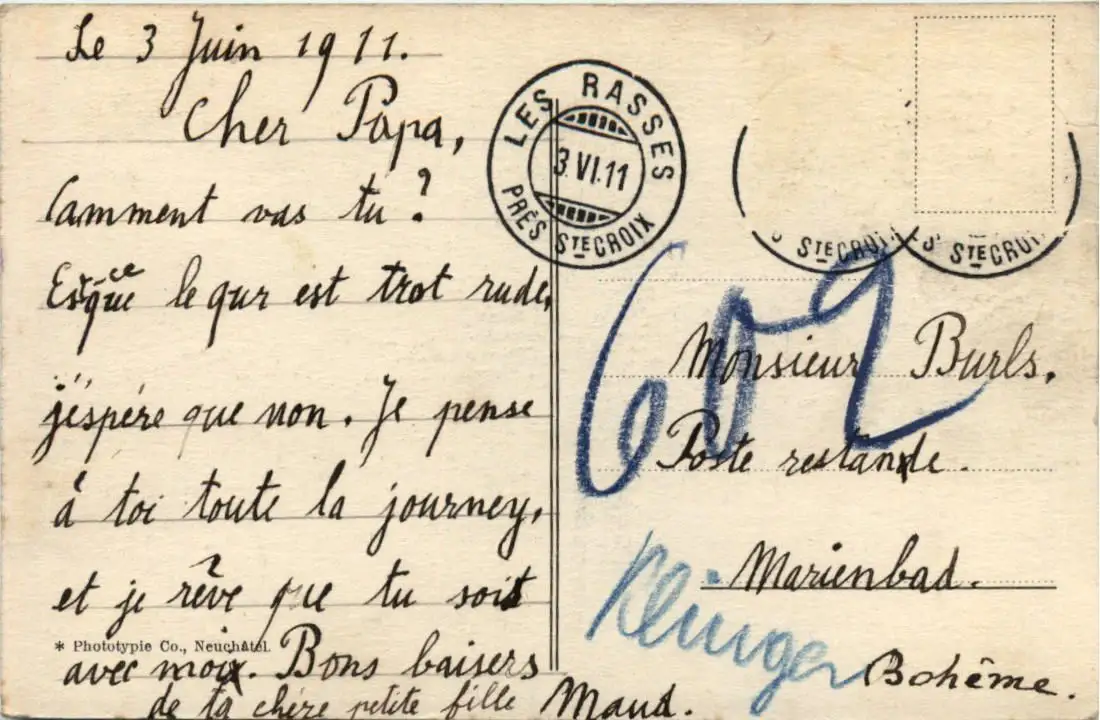 Le 3 Juin 1911.
Cher Papa,
Camment vas tu ?
Esceque le qur est trot rude,
j'éspére que non. Je pense
à toi toute la journey,
et je rêve que tu soit
* Phototypie Co., Neuchâtel.
avec moi. Bons baisers
de ta chére petite fille Maud.
LES RASSES
3 VI.11
PRÈS STE CROIX
STE CROIX
STE CROIX
602
Monsieur Burls,
Poste restante.
Marienbad.
Bohême.